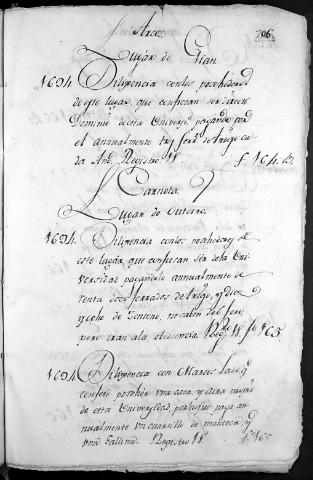 Arcos 706
Lugar de Gian
1694 Diligencia con los poseedores
de este lugar, que confiesan ser direct
Dominio de esta Universd. pagando por
el annualmente tres ferrs. de trigo ca
da Año. Registro 18. fº 164. B.
Carnota
Lugar de Outeiro
1694. Diligencia con los poseedores de
este lugar, que confiesan ser de la Uni
versidad pagandole annualmente de
renta doce ferrados de trigo, y diez
y ocho de Zenteno, no saben del fuero,
pero eran a la obediencia. Regº 18 fº 165
1694 Diligencia con Marcos Lado q
confeso posehir una casa, y otra propia
de esta Universidad, por lo que paga an-
nualmente un cuartillo de manteca, y
una Gallina. Registro 18. fº 165